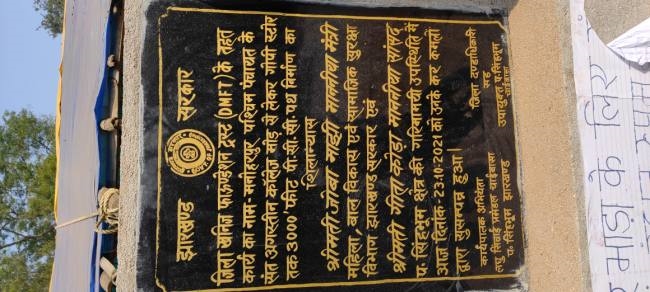 झारखण्ड सरकार
जिला खनिज फाऊण्डेशन ट्रस्ट (DMFT) के तहत
कार्य का नाम- मनोहरपुर पश्चिम पंचायत के
संत अगस्तीन कॉलेज मोड़ से लेकर गोपी स्टोर
तक 3000' फीट पी.सी.सी. पथ निर्माण का
शिलान्यास
श्रीमती जोबा माझी माननीया मंत्री
महिला, बाल विकास एवं सामाजिक सुरक्षा
विभाग झारखण्ड सरकार एवं
श्रीमती गीता कोड़ा माननीया सांसद
प. सिंहभूम क्षेत्र की गरिमामयी उपस्थिति में
आज दिनांक-23-10-2021 को उनके कर कमलों
द्वारा सुसम्पन्न हुआ।
कार्यपालक अभियंता
लघु सिंचाई प्रमंडल चाईबासा
प. सिंहभूम झारखण्ड
जिला दण्डाधिकारी
सह
उपायुक्त, प. सिंहभूम
चाईबासा
माड़ा के लिए